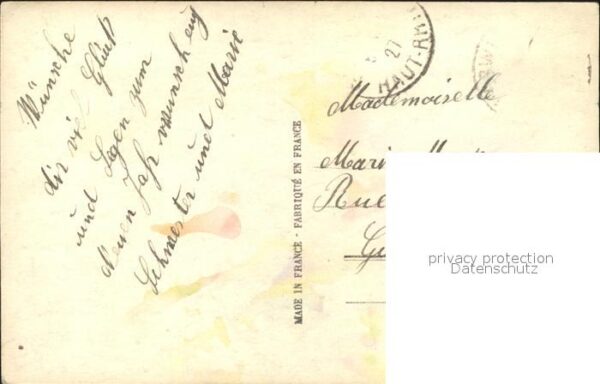 Wünsche
dir viel Glück
und Segen zum
neuen Jahr wunscht eug
Schwester und Marie
MADE IN FRANCE - FABRIQUÉ EN FRANCE
27
HAUT-RHIN
Mademoiselle
Marie
Rue
privacy protection
Datenschutz